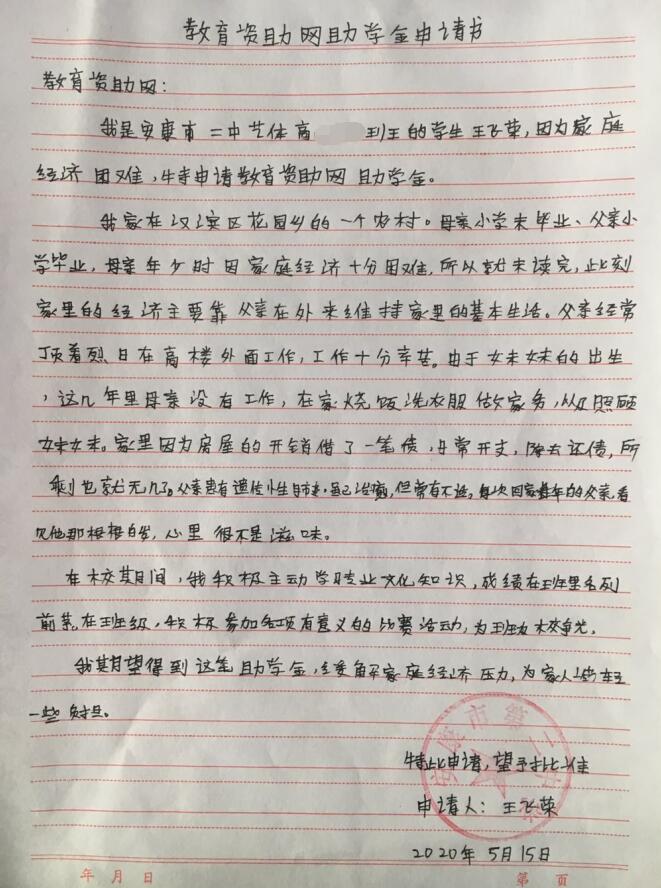 教育资助网助学金申请书
教育资助网：
我是安康市二中艺体高 班王的学生王飞荣，因为家庭
经济困难，特申请教育资助网助学金。
我家在汉滨区花园乡的一个农村。母亲小学未毕业、父亲小
学毕业，母亲年少时因家庭经济十分困难，所以就未读完，此刻
家里的经济主要靠父亲在外来维持家里的基本生活。父亲经常
顶着烈日在高楼外面工作，工作十分辛苦。由于妹妹的出生
，这几年里母亲没有工作，在家烧饭洗衣服做家务，以及照顾
妹妹。家里因为房屋的开销借了一笔债，日常开支，除去还债，所
剩也就无几了。父亲患有遗传性，但常有不适，每次回家的父亲，看
见他那根根白发，心里很不是滋味。
在校其间，我积极主动学习专业文化知识，成绩在班里名列
前茅。在班级，积极参加各项有意义的比赛活动，为班级校争光。
我其望得到这笔助学金，缓解家庭经济压力，为家人减轻
一些负担。
特此申请，望予批准
申请人：王飞荣
2020年5月15日
安康市第二中学
年 月 日
第 页